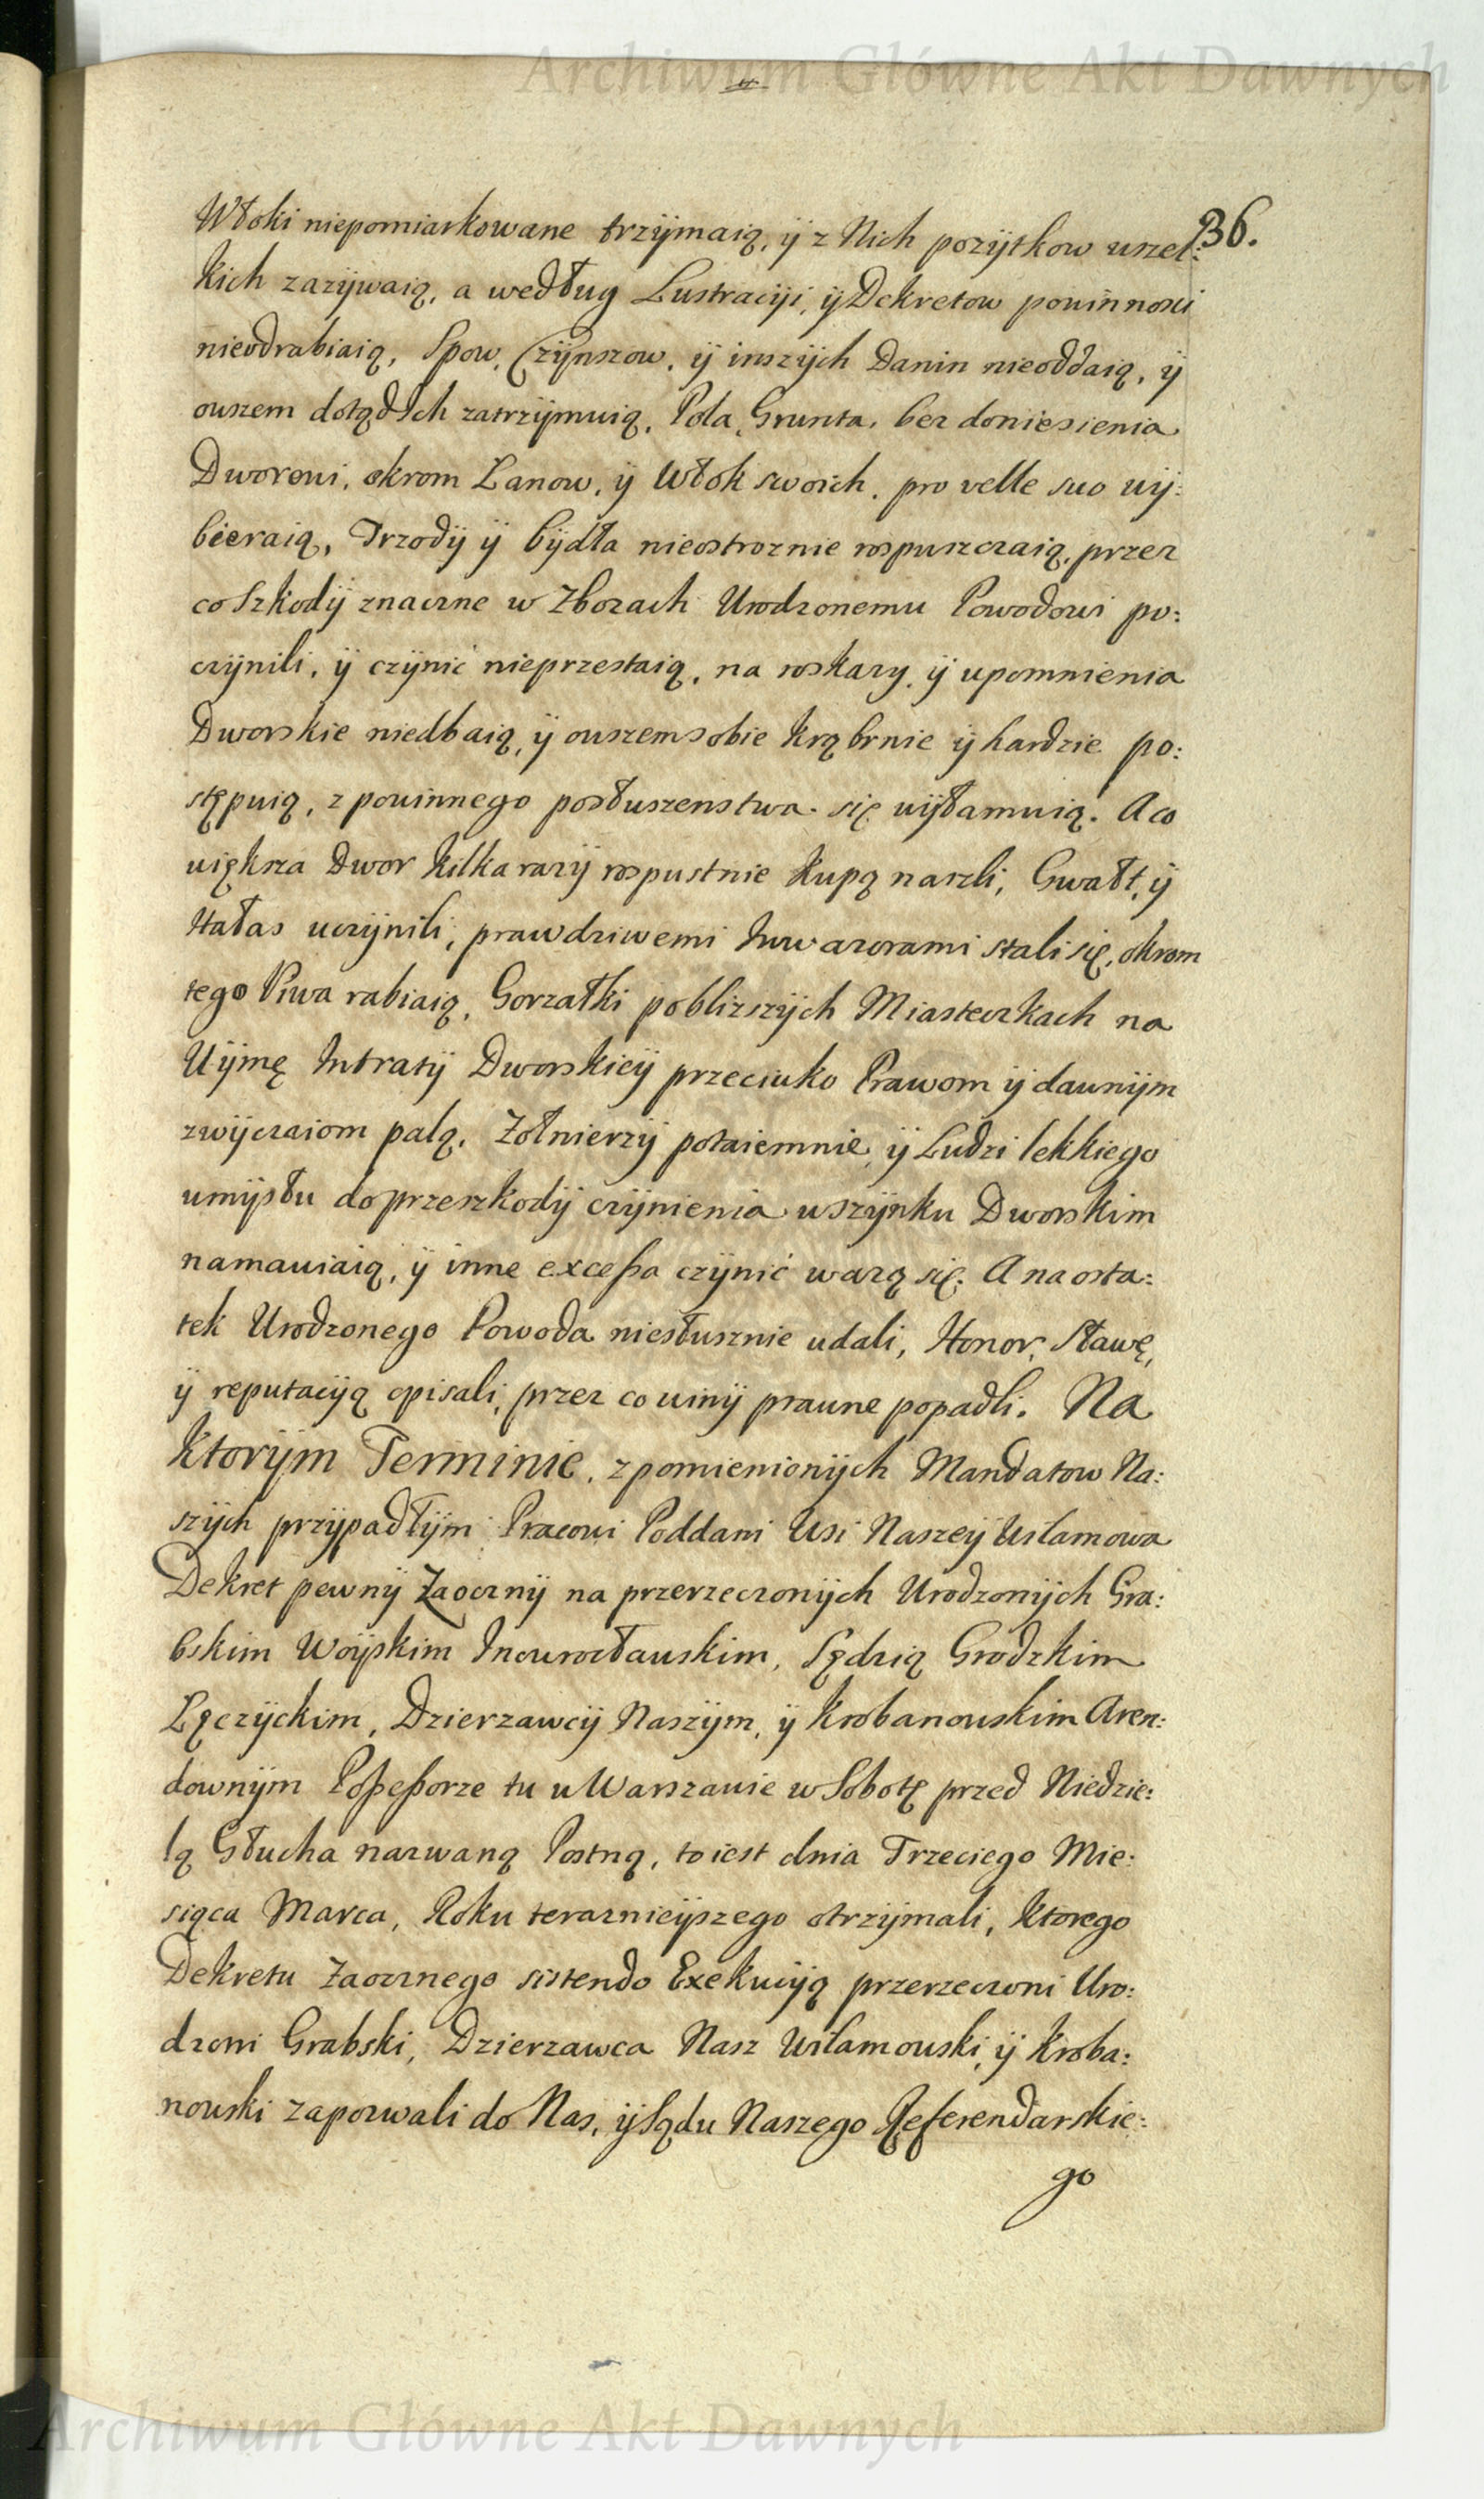 Archiwum Główne Akt Dawnych
36.
Włoki niepomiarkowane trzÿmaią, ÿ z Nich pozÿtkow wszel:
kich zazÿwaią, a według Lustraciÿi, ÿ Dekretow powinnosci
nieodrabiaią, Spow, Czÿnszow, ÿ inszÿch Danin nieoddaią, ÿ
owszem dotąd Ich zatrzÿmuią, Pola, Grunta, bez doniesienia
Dworowi, okrom Lanow, ÿ Włok swoich, pro velle suo wÿ:
bieraią, Trzodÿ ÿ bÿdła nieostroznie rospuszczaią, przez
co Szkodÿ znaczne w Zbozach Urodzonemu Powodowi po:
czÿnili, ÿ czÿnić nieprzestaią, na roskazy, ÿ upomnienia
Dworskie niedbaią, ÿ owszem sobie krąbrnie ÿ hardzie po:
stępuią, z powinnego posłuszenstwa się wÿłamuią. A co
większa Dwor kilka razÿ rospustnie Kupą naszli, Gwałt, ÿ
Hałas uczÿnili, prawdziwemi Inwazorami stali się, okrom
tego Piwa rabiaią, Gorzałki poblizszÿch Miasteczkach na
Uÿmę Intratÿ Dworskieÿ przeciwko Prawom ÿ dawnÿm
zwÿczaiom palą, Zołnierzÿ potaiemnie, ÿ Ludzi lekkiego
umÿsłu do przeszkodÿ czÿnienia w szÿnku Dworskim
namawiaią, ÿ inne excessa czÿnić wazą się. A na osta:
tek Urodzonego Powoda niesłusznie udali, Honor, Sławę,
ÿ reputacÿą opisali, przez co winÿ prawne popadli. Na
Ktorÿm Terminie, z pomienionÿch Mandatow Na:
szÿch przÿpadłÿm Pracowi Poddani Wsi Naszeÿ Wilamowa
Dekret pewnÿ Zaocznÿ na przerzeczonÿch Urodzonÿch Gra:
bskim Woÿskim Inowrocławskim, Sędzią Grodzkim
Lęczÿckim, Dzierzawcÿ Naszÿm, ÿ Krobanowskim Aren:
downÿm Possessorze tu w Warszawie w Sobotę przed Niedzie:
lą Głucha nazwaną Postną, to iest dnia Trzeciego Mie:
siąca Marca, Roku teraznieÿszego otrzÿmali, Ktorego
Dekretu Zaocznego sistendo Exekucÿą przerzeczoni Uro:
dzoni Grabski, Dzierzawca Nasz Wilamowski, ÿ Kroba:
nowski zapozwali do Nas, ÿ Sądu Naszego Referendarskie:
go
Archiwum Główne Akt Dawnych